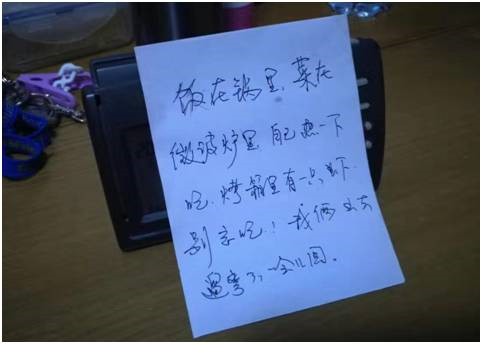 饭在锅里,菜在
微波炉里,自己热一下
吃.烤箱里有一只
别忘吃!我俩出去
遛弯了,一会儿回.